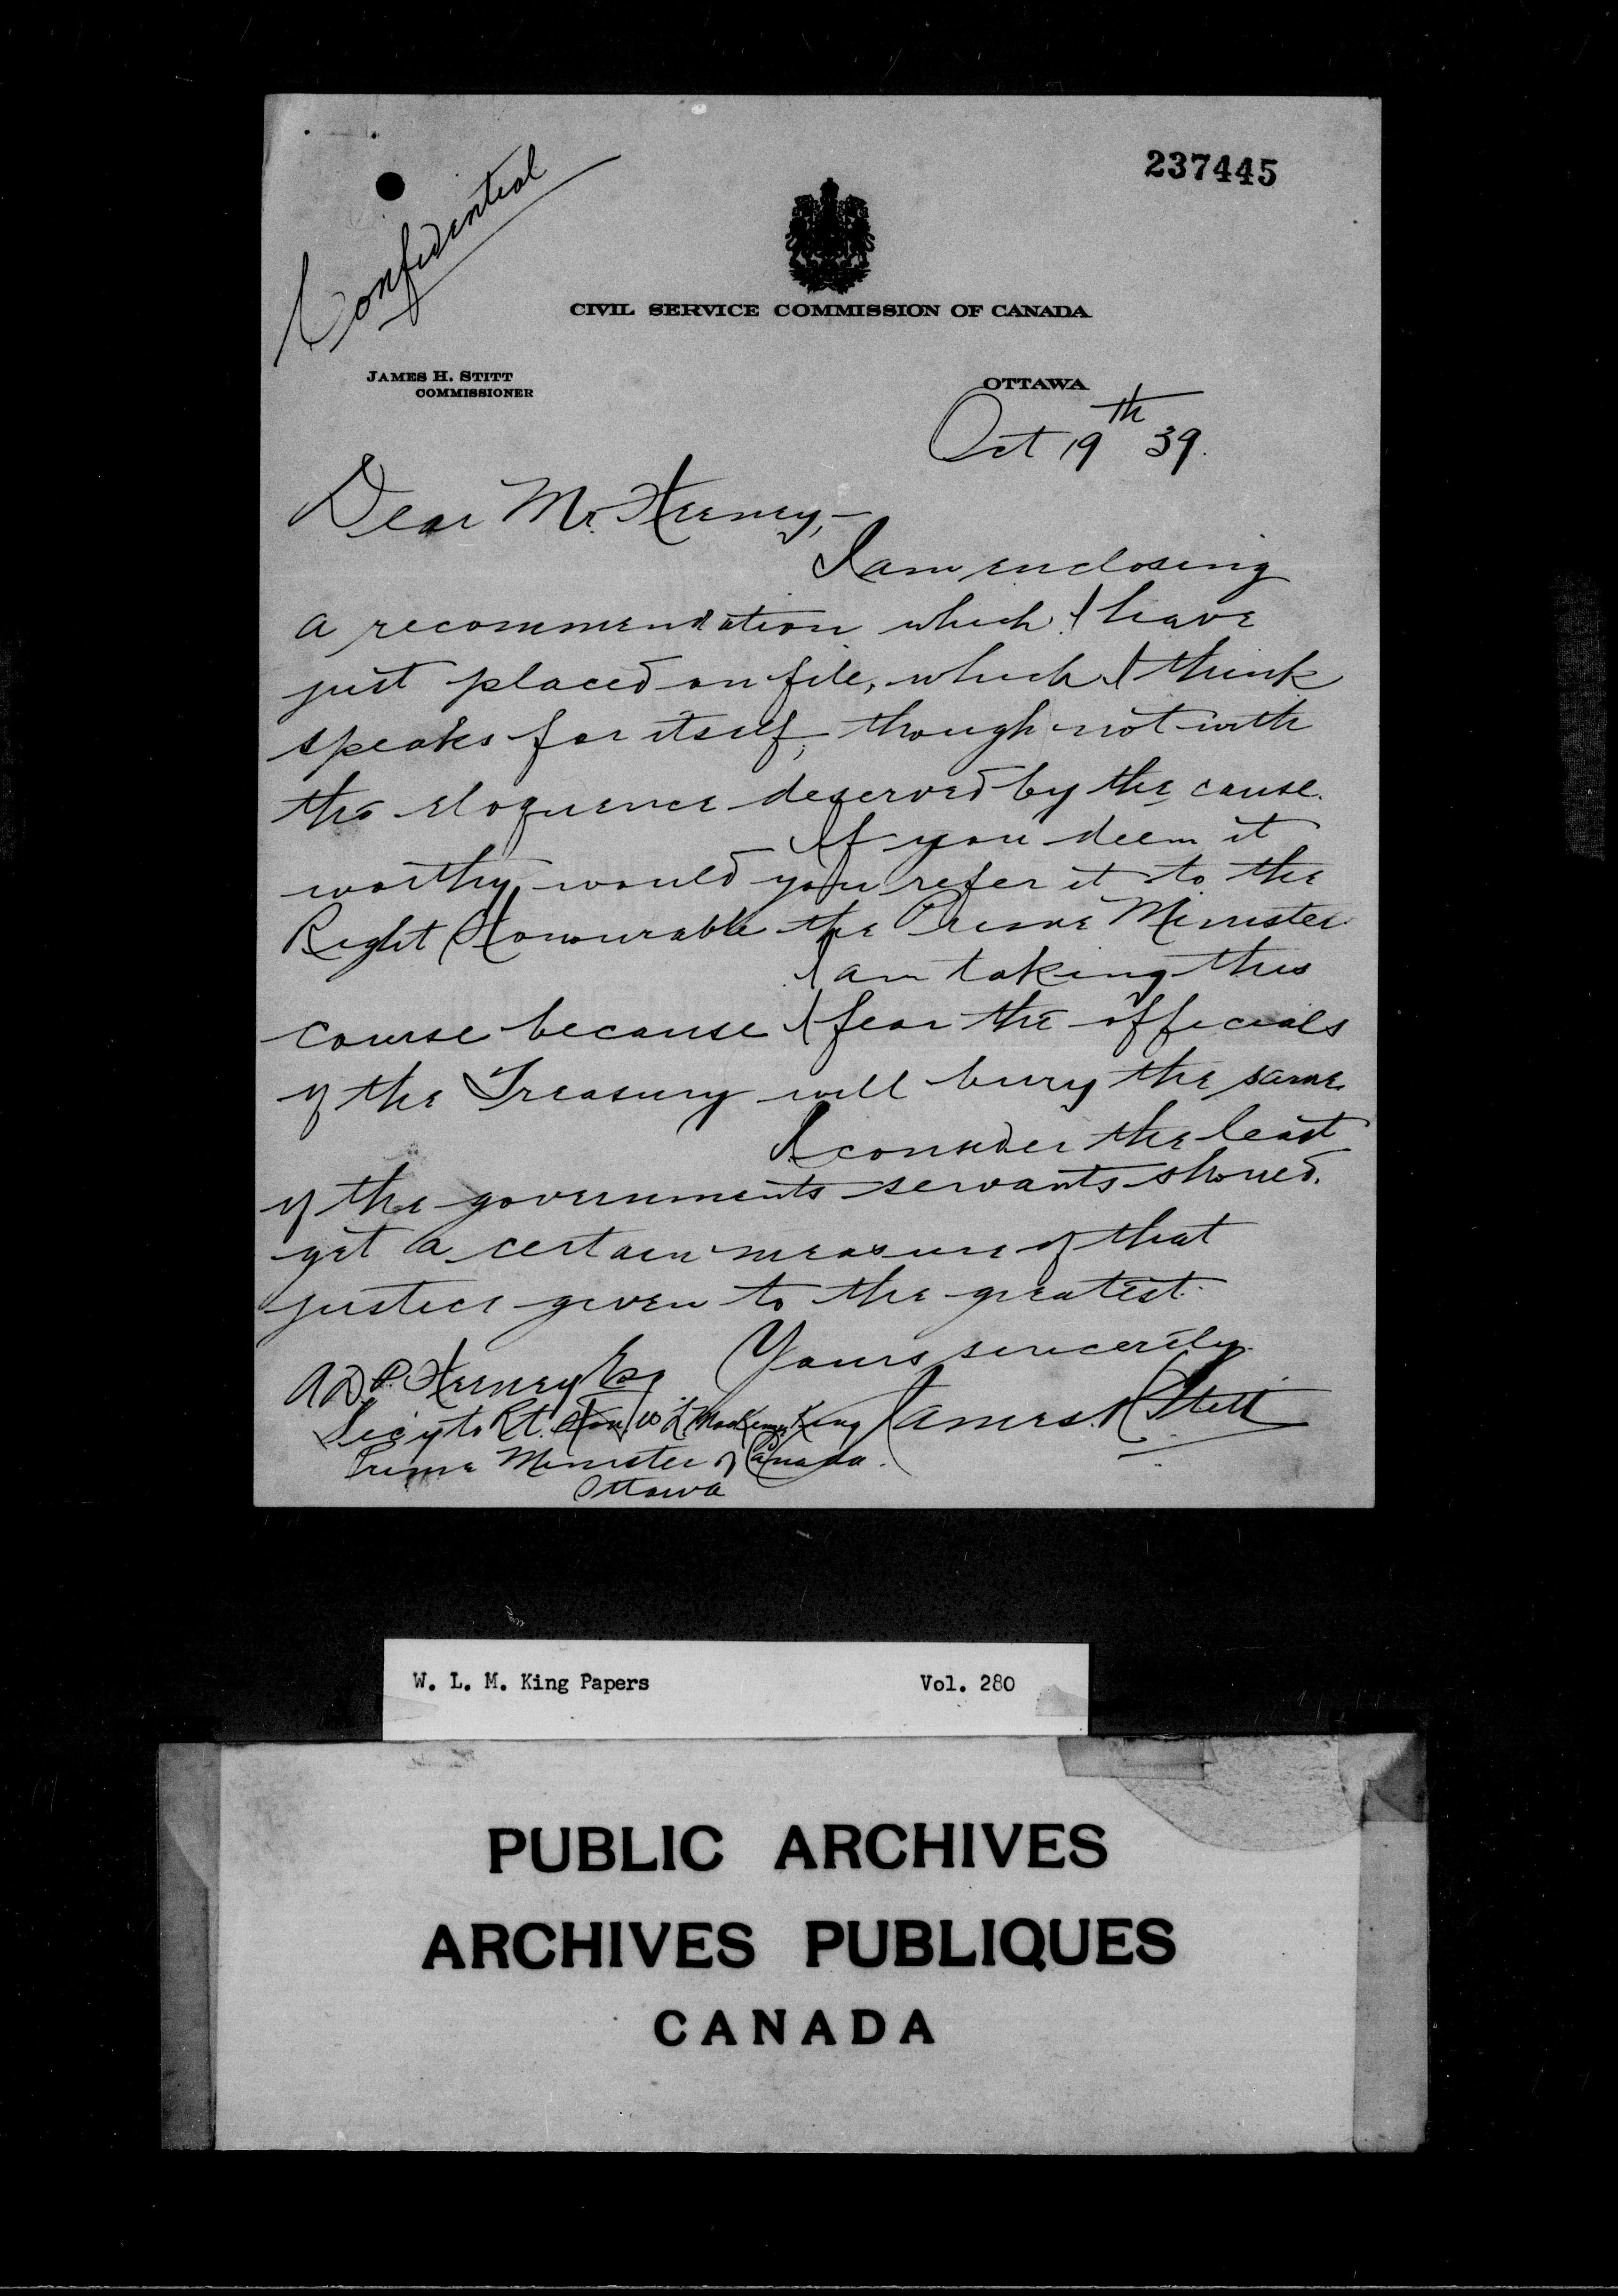 237445
Confidential
CIVIL SERVICE COMMISSION OF CANADA
JAMES H. STITT
COMMISSIONER
OTTAWA
Oct 19th 39.
Dear Mr. Heeney,—
I am enclosing
a recommendation which I have
just placed on file, which I think
speaks for itself, though not with
the eloquence deserved by the cause.
If you deem it
worthy, would you refer it to the
Right Honourable the Prime Minister
I am taking this
course because I fear the officials
of the Treasury will bury the same.
I consider the least
of the governments servants should
get a certain measure of that
justice given to the greatest.
Yours sincerely.
James H Stitt
A D P. Heeney Esq
Sec'y to Rt. Hon. W L MacKenzie King
Prime Minister of Canada.
Ottawa
W. L. M. King Papers Vol. 280
PUBLIC ARCHIVES
ARCHIVES PUBLIQUES
CANADA